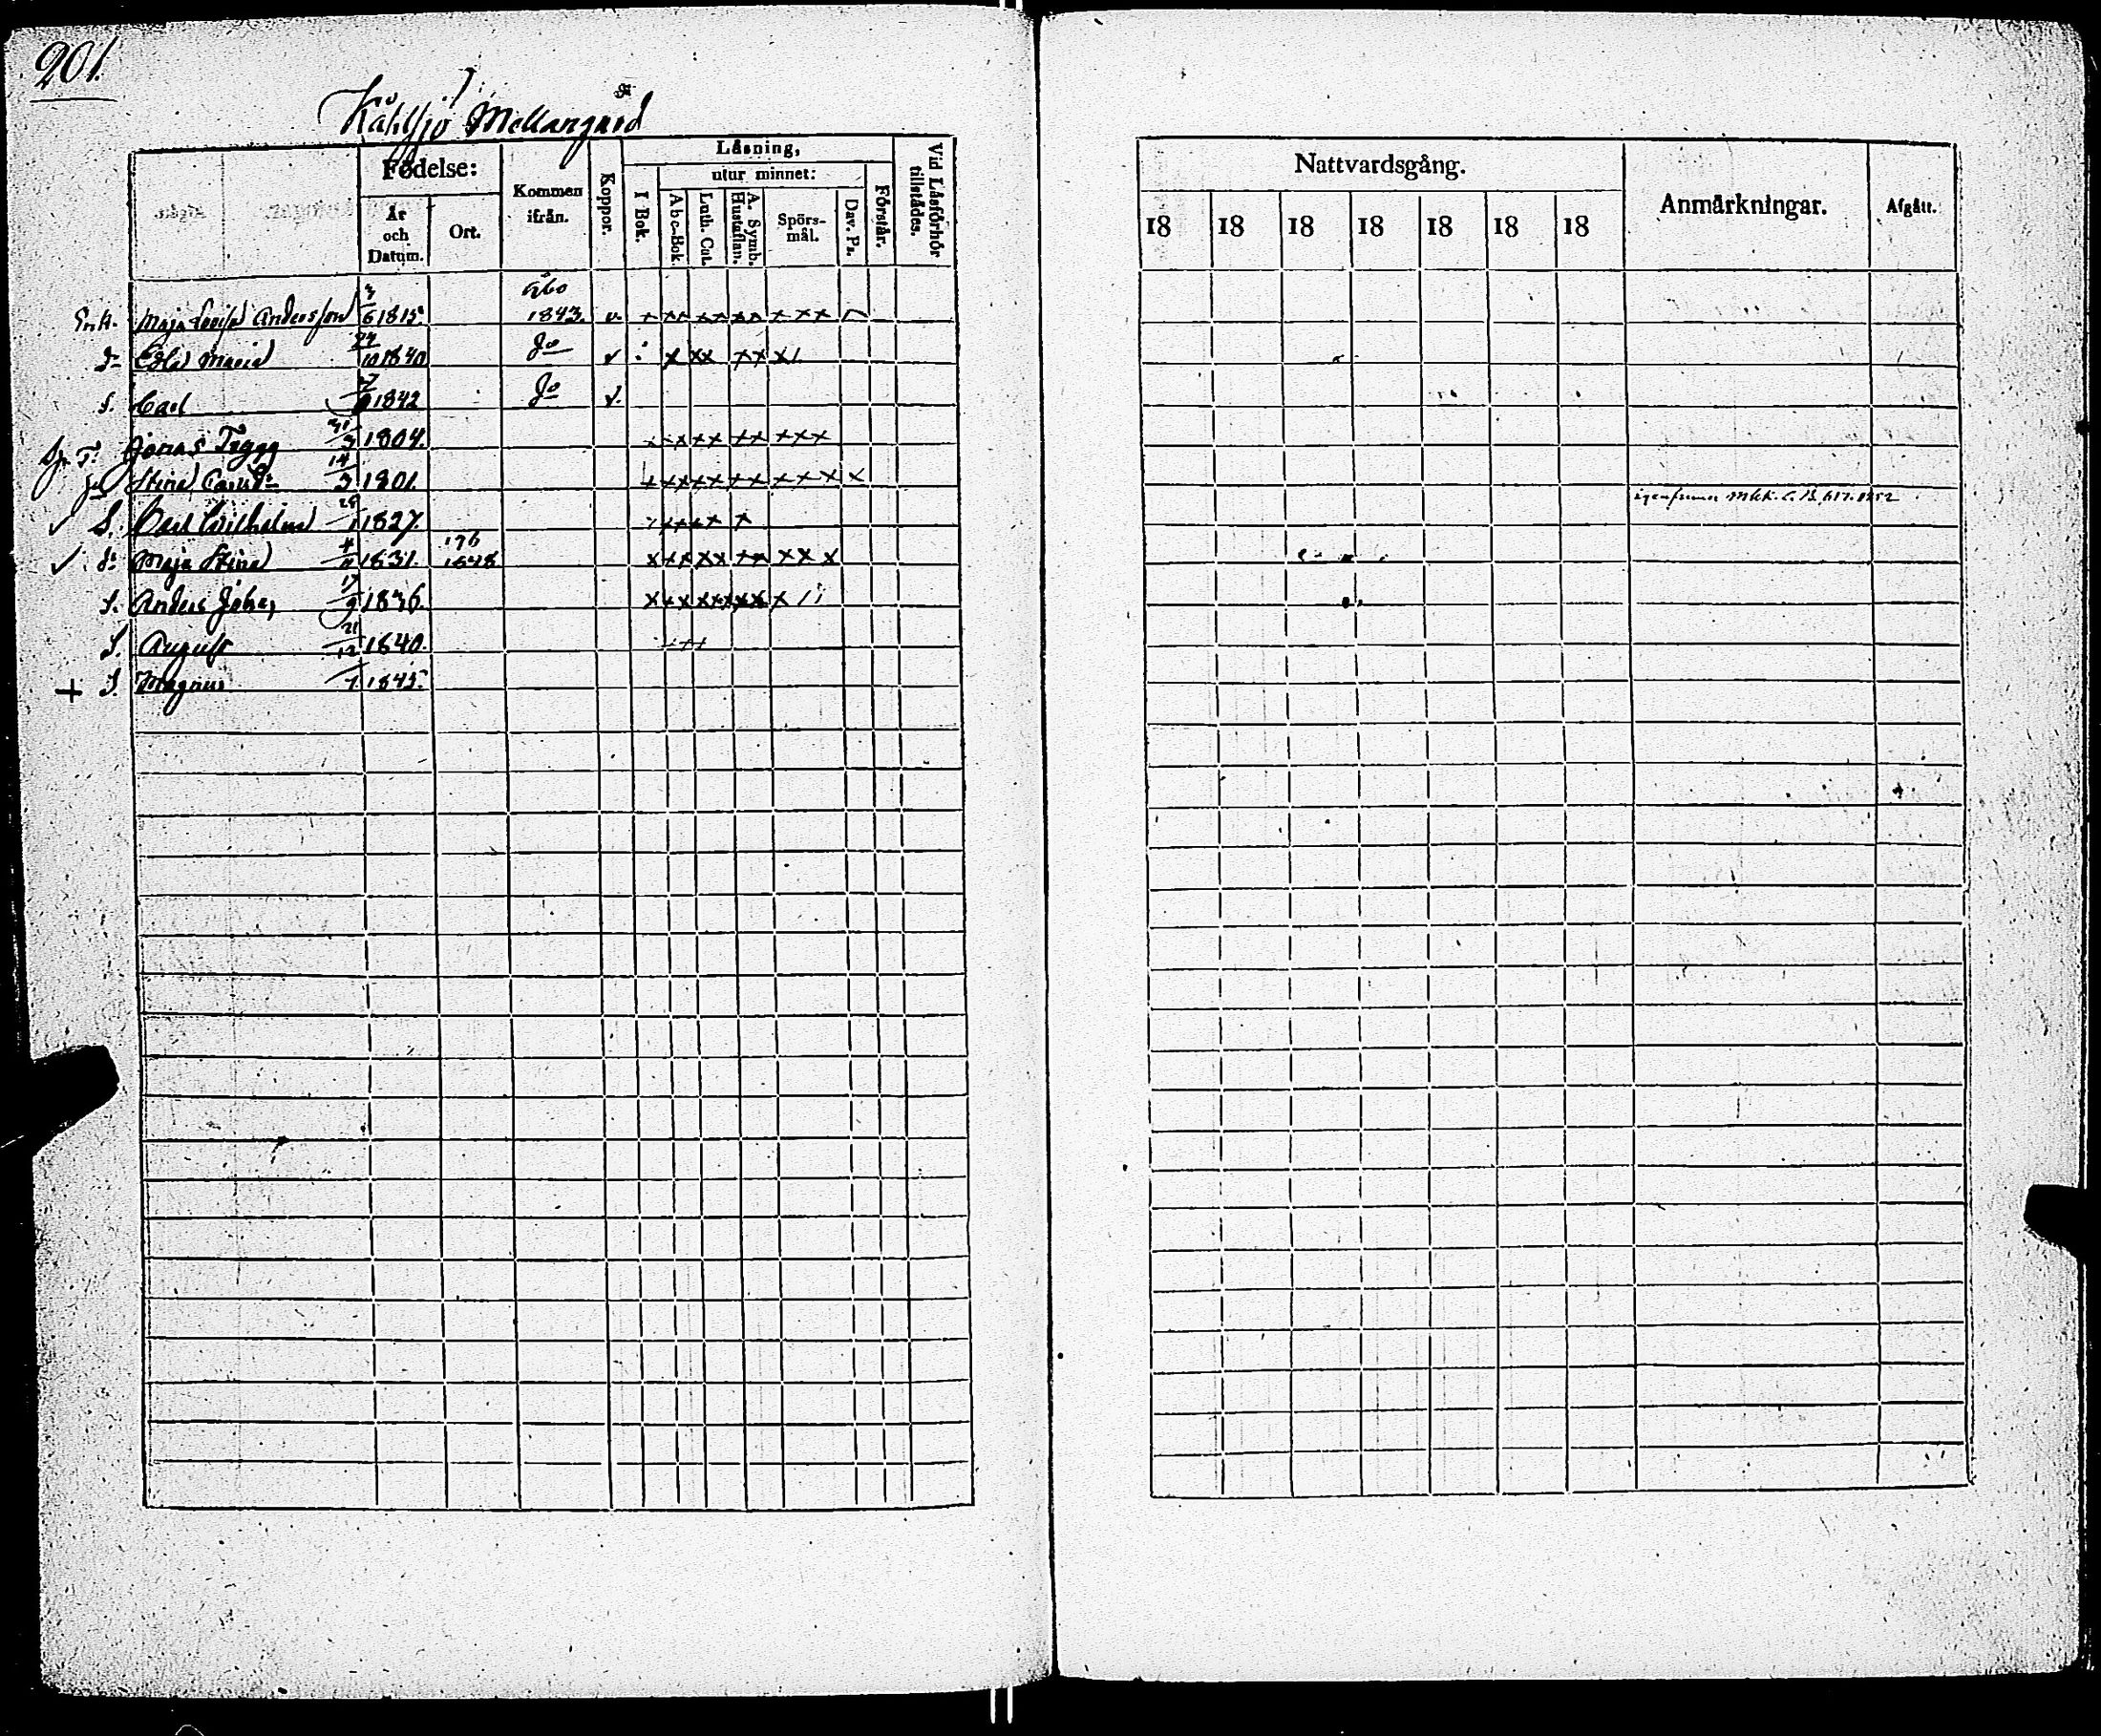 201.
Mellangård
Födelse:
År och Datum.
Ort.
Kommen ifrån.
Koppor.
Läsning,
I Bok.
utur minnet:
Abc-Bok
Luth. Cat.
A. Symb. Hustaflan.
Spörs-mål.
Dav. Ps.
Förstår.
Vid Läsförhör tillstädes.
Nattvardsgång.
18 18 18 18 18 18 18
Anmärkningar.
Afgått.
Åbo
Enk. Maja Lovisa Andersson 3/6 1815. 1843. v.
dr Edla Maria 24/10 1840 Do v
S. Carl 1842 Do v.
Jonas Trygg 31/3 1804.
Stina Caisa 14/3 1801.
√ S. Carl Wilhelm 28/1 1827.
√. dr Maja Stina 4/11 1831. 1848
S. Anders Johan 17/9 1836.
S. August 21/12 1840.
+ S. Magnus 1845.